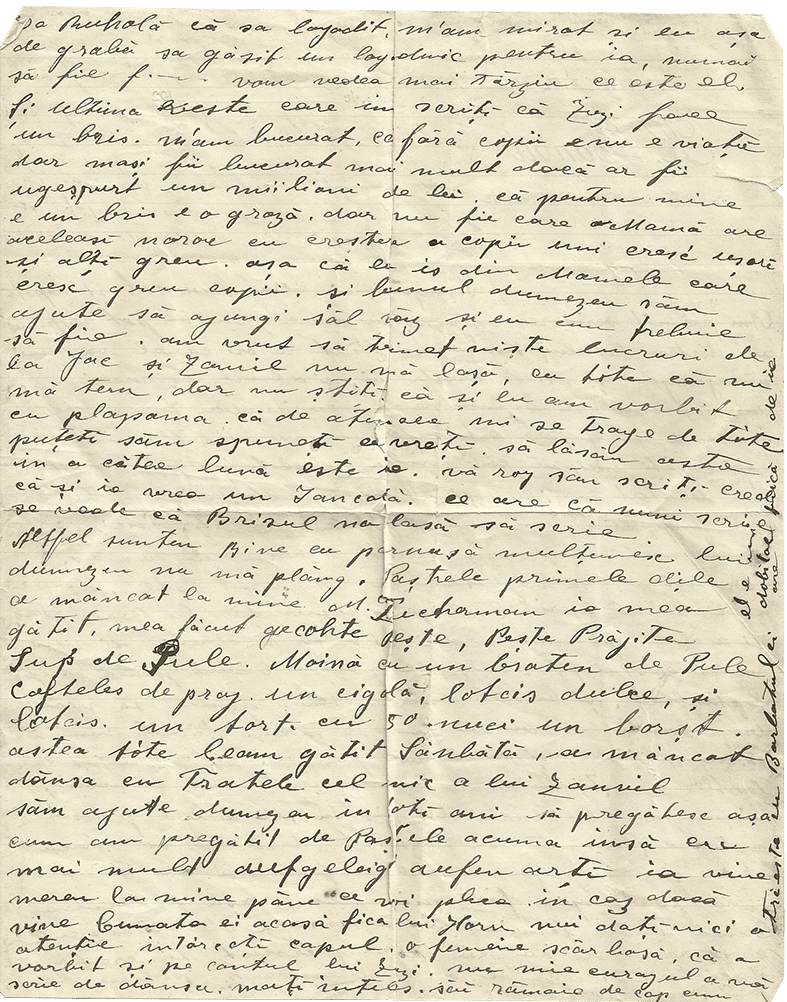 Ruhală că sa logodit, m'am mirat si eu așa
de grabă sa găsit un logodnic pentru ia, numai
să fie f.... vom vedea mai târziu ce este el.
Și ultima veste care im scriți că Zuzi face
un bris. m'am bucurat, ca fără copii nu e viață
dar mași fii bucurat mai mult dacă ar fii
ugespurt un miilion de lei. că pentru mine
e un bris e o grază. dar nu fie care Mamă are
aceleași noroc cu creștea a copii unii cresc ușor
si alții greu. așa că eu is din Mamele care
cresc greu copii. și bunul dumnezeu săm
ajute să ajungi săl văz și eu cum trebuie
să fie. am vrut să trimet niște lucruri de
la Jac si Zamil nu mă lasă, cu tôte că nu
mă tem, dar nu știți că și eu am vorbit
cu plapama. că de atuncea mi se trage de tôte
puteți săm spuneți ce vreți. să lăsăm astea
in a câtea lună este ie. vă rog săm scriți cred
că și ie vrea un Iancală. ce are că numi scrie
se vede că Brisul na lasă să scrie.
Altfel suntem Bine cu parnusă mulțumesc lui
dumnezeu nu mă plâng. Paștele primele dile
a mâncat la mine M. Zicherman ia mea
gătit, mea făcut gecohte pește, Pește Prăjite
Sup de Pule. Moină cu un braten de Pule
Cofteles de praj. un cigolă, lotcis dulce, și
lotcis. un tort cu 50 nuci un borșt.
astea tôte leam gătit Sânbătă, a mâncat
dânsa cu Fratele cel mic a lui Zamvil
săm ajute dumnezeu in toți ani să pregătesc așa
cum am pregătit de Paștele acuma insă cu
mai mult aufgeleigt aufen arti ia vine
mereu la mine până ce voi pleca. in caz dacă
vine Cumnata ei acasă fica lui Horn nui dați nici o
atenție intorceti capul. o femeie scârboasă, că a
vorbit si pe contul lui Zuzi. nu mie curajul a vă
scrie de dânsa. mați ințeles. său rămâie de cap cum
trăiasta cu Barbatului ei dobitoc